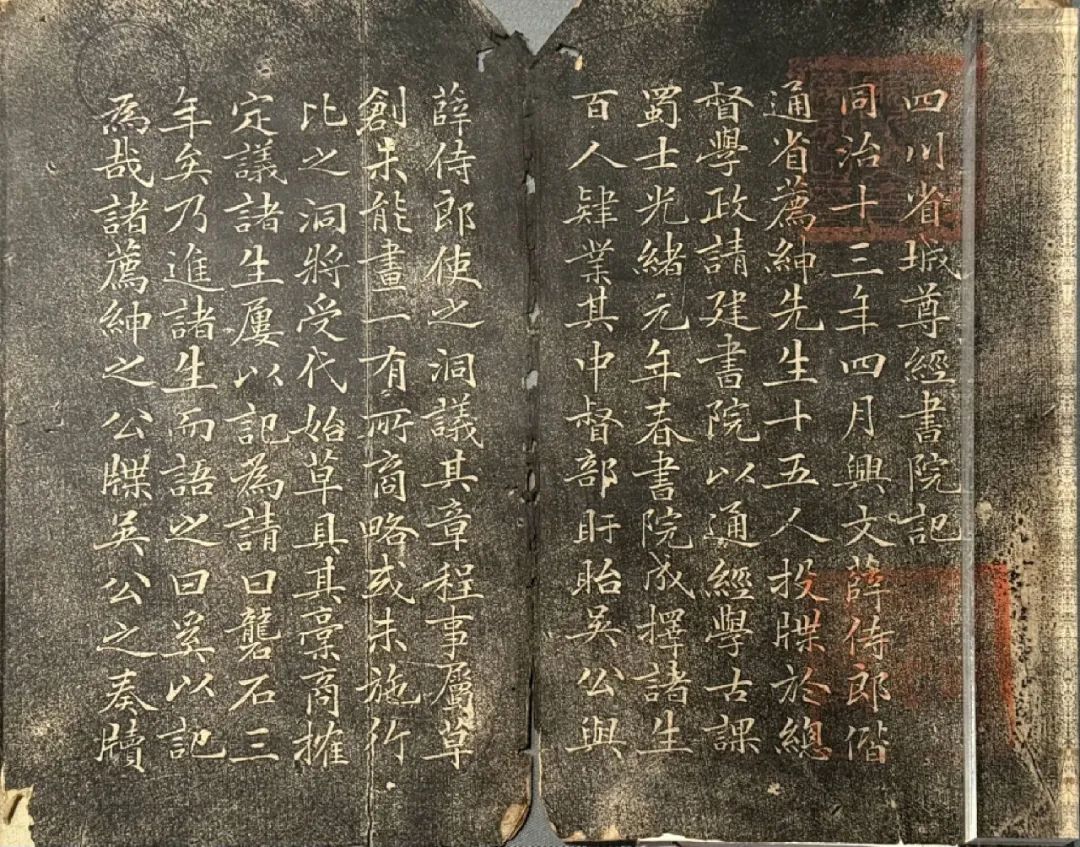 四川省城尊經書院記
同治十三年四月興文薛侍郎偕
通省薦紳先生十五人投牒於總
督學政請建書院以通經學古課
蜀士光緒元年春書院成擇諸生
百人肄業其中督部盱眙吳公與
薛侍郎使之洞議其章程事屬草
創未能畫一有所商略或未施行
比之洞將受代始草具其稾商搉
定議諸生屢以記為請曰礱石三
年矣乃進諸生而語之曰奚以記
為哉諸薦紳之公牒吳公之奏牘